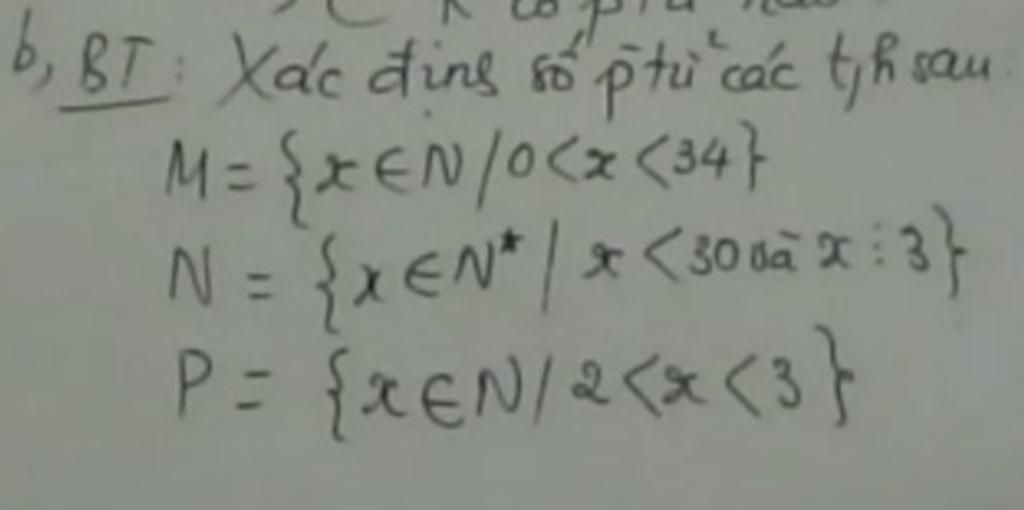 b, BT: Xác định số p tử các t,h sau:
M = {x ∈ N / 0 < x < 34}
N = {x ∈ N* / x < 30 và x ⋮ 3}
P = {x ∈ N / 2 < x < 3}